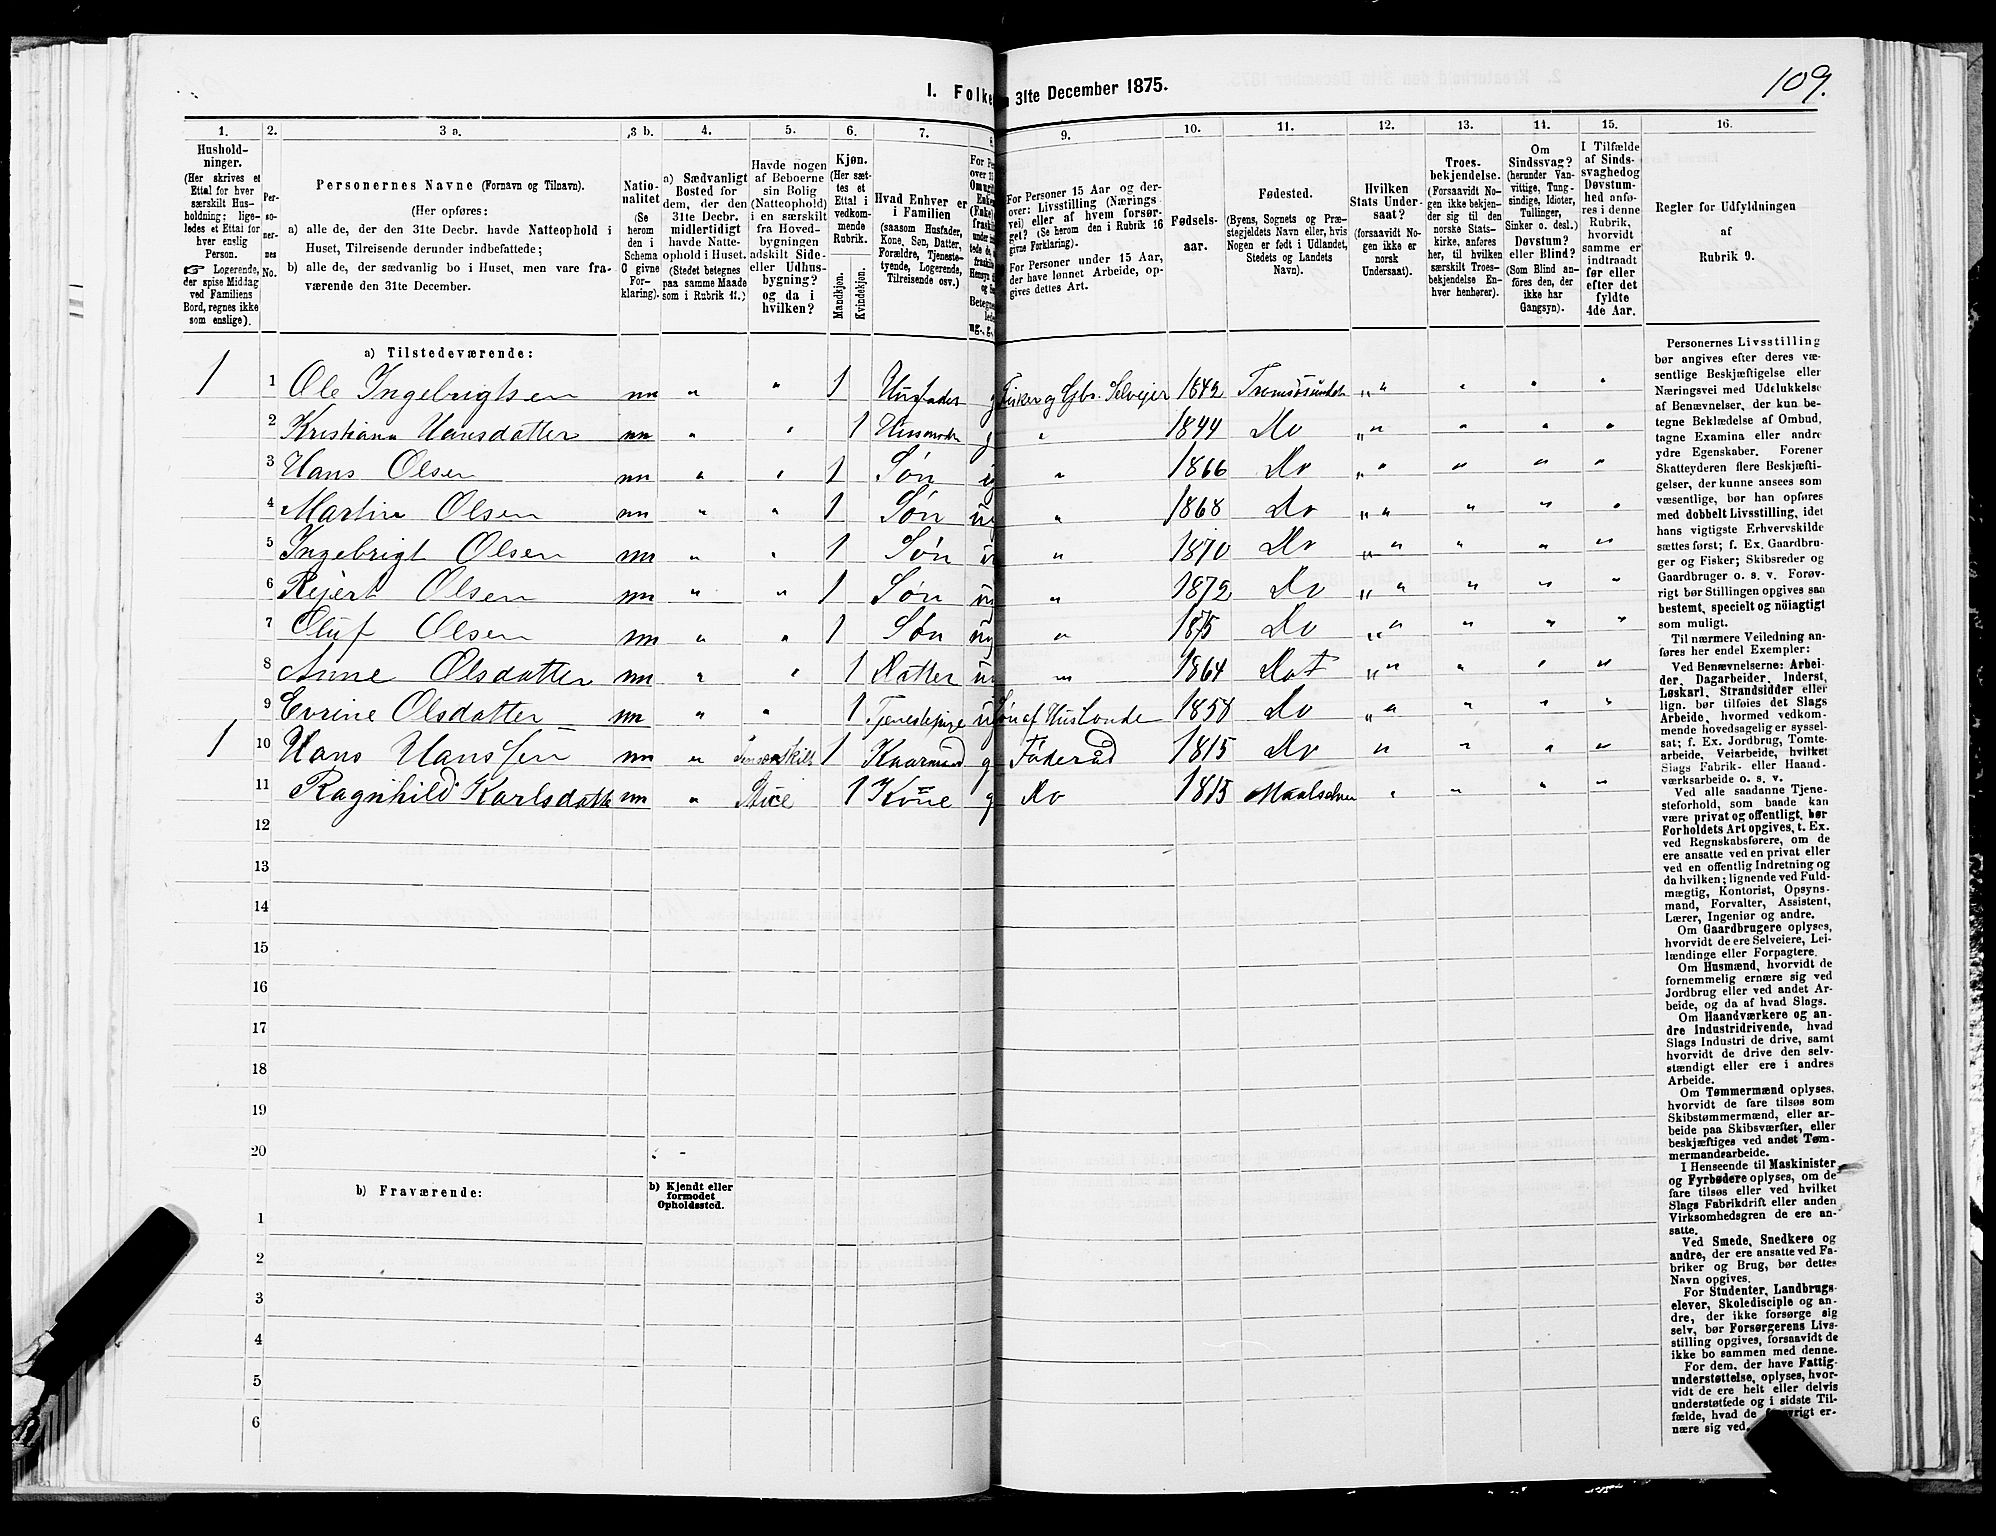 109.
I. Folke 31te December 1875.
1. 2. 3 a. 3 b. 4. 5. 6. 7. 8 9. 10. 11. 12. 13. 14. 15. 16.
Hushold-
ninger.
(Her skrives et
Ettal for hver
særskilt Hus-
holdning; lige-
ledes et Ettal for
hver enslig
Person.
☞ Logerende,
der spise Middag
ved Familiens
Bord, regnes ikke
som enslige).
Per-
so-
ner-
nes
No.
Personernes Navne (Fornavn og Tilnavn).
(Her opføres:
a) alle de, der den 31te Decbr. havde Natteophold i
Huset, Tilreisende derunder indbefattede;
b) alle de, der sædvanlig bo i Huset, men vare fra-
værende den 31te December.
Natio-
nalitet
(Se
herom
den i
Schema
O givne
For-
klaring).
a) Sædvanligt
Bosted for
dem, der den
31te Decbr.
midlertidigt
havde Natte-
ophold i Huset.
(Stedet betegnes
paa samme Maade
som i Rubrik 11.)
Havde nogen
af Beboerne
sin Bolig
(Natteophold)
i en særskilt
fra Hoved-
bygningen
adskilt Side-
eller Udhus-
bygning?
og da i
hvilken?
Kjøn.
(Her sæt-
tes et
Ettal i
vedkom-
mende
Rubrik.
Mandkjøn.
Kvindekjøn.
Hvad Enhver er
i Familien
(saasom Husfader,
Kone, Søn, Datter,
Forældre, Tjeneste-
tyende, Logerende,
Tilreisende osv.)
For Personer 15 Aar og der-
over: Livsstilling (Nærings
vei) eller af hvem forsør-
get? (Se herom den i Rubrik 16
givne Forklaring).
For Personer under 15 Aar,
der have lønnet Arbeide, op-
gives dettes Art.
Fødsels-
aar.
Fødested.
(Byens, Sognets og Præ-
stegjeldets Navn eller, hvis
Nogen er født i Udlandet,
Stedets og Landets
Navn).
Hvilken
Stats Under-
saat?
(forsaavidt No-
gen ikke er
norsk
Undersaat).
Troes-
bekjendelse.
(Forsaavidt No-
gen ikke bekjen-
der sig til den
norske Stats-
kirke, anføres
her, til hvilken
særskilt Troes-
bekjendelse En-
hver henhører).
Om
Sindssvag?
(herunder Van-
vittige, Tung-
sindige, Idioter,
Tullinger,
Sinker o. desl.)
Døvstum?
eller Blind?
(Som Blind an-
føres den, der
ikke har
Gangsyn).
I Tilfælde
af Sinds-
svaghed og
Døvstum-
hed anfø-
res i denne
Rubrik,
hvorvidt
samme er
indtraadt
før eller
efter det
fyldte
4de Aar.
Regler for Udfyldningen
af
Rubrik 9.
a) Tilstedeværende:
1 1 Ole Ingebrigtsen nn " " 1 Husfader g Fisker og Gbr. Selveier 1842 Tromsøsundet " " " " "
2 Kristiana Hansdatter nn " " 1 Husmoder g " 1844 Do " " " " "
3 Hans Olsen nn " " 1 Søn ug " 1866 Do " " " " "
4 Martin Olsen nn " " 1 Søn ug " 1868 Do " " " " "
5 Ingebrigt Olsen nn " " 1 Søn u " 1870 Do " " " " "
6 Rejert Olsen nn " " 1 Søn ug " 1872 Do " " " " "
7 Oluf Olsen nn " " 1 Søn ug " 1875 Do " " " " "
8 Anne Olsdatter nn " " 1 Datter ug " 1864 Do " " " " "
9 Evrine Olsdatter nn " " 1 Tjenestepige u af Husbonde 1858 Do " " " " "
1 10 Hans Hanssen nn " 1 Kaarmand g Føderåd 1815 Do " " " "
11 Ragnhild Karlsdatte nn " 1 Kone g Do 1815 Maalselven " " " "
12
13
14
15
16
17
18
19
20
b) Fraværende: b) Kjendt eller
formodet
Opholdssted.
1
2
3
4
5
6
Personernes Livsstilling
bør angives efter deres væ-
sentlige Beskjæftigelse eller
Næringsvei med Udelukkelse
af Benævnelser, der kun be-
tegne Beklædelse af Ombud,
tagne Examina eller andre
ydre Egenskaber. Forener
Skatteyderen flere Beskjæfti-
gelser, der kunne ansees som
væsentlige, bør han opføres
med dobbelt Livsstilling, idet
hans vigtigste Erhvervskilde
sættes først; f. Ex. Gaardbru-
ger og Fisker; Skibsreder og
Gaardbruger o. s. v. Forøv-
rigt bør Stillingen opgives saa
bestemt, specielt og nöiagtigt
som muligt.
Til nærmere Veiledning an-
føres her endel Exempler:
Ved Benævnelserne: Arbei-
der, Dagarbeider, Inderst,
Løskarl, Strandsidder eller
lign. bør tilføies det Slags
Arbeide, hvormed vedkom-
mende hovedsagelig er syssel-
sat; f. Ex. Jordbrug, Tomte-
arbeide, Veiarbeide, hvilket
Slags Fabrik- eller Haand-
værksarbeide o. s. v.
Ved alle saadanne Tjene-
steforhold, som baade kan
være privat og offentligt, bør
Forholdets Art opgives, t. Ex.
ved Regnskabsførere, om de
ere ansatte ved en privat eller
ved en offentlig Indretning og
da hvilken; lignende ved Fuld-
mægtig, Kontorist, Opsyns-
mand, Forvalter, Assistent,
Lærer, Ingeniør og andre.
Om Gaardbrugere oplyses,
hvorvidt de ere Selveiere, Lei-
lændinge eller Forpagtere.
Om Husmænd, hvorvidt de
fornemmelig ernære sig ved
Jordbrug eller ved andet Ar-
beide, og da af hvad Slags.
Om Haandværkere og an-
dre Industridrivende, hvad
Slags Industri de drive, samt
hvorvidt de drive den selv-
stændigt eller ere i andres
Arbeide.
Om Tømmermænd oplyses,
hvorvidt de fare tilsøs som
Skibstømmermænd, eller ar-
beide paa Skibsværfter, eller
beskjæftiges ved andet Tøm-
mermandsarbeide.
I Henseende til Maskinister
og Fyrbødere oplyses, om de
fare tilsøs eller ved hvilket
Slags Fabrikdrift eller anden
Virksomhedsgren de ere an-
satte.
Ved Smede, Snedkere og
andre, der ere ansatte ved Fa-
briker og Brug, bør dettes
Navn opgives.
For Studenter, Landbrugs-
elever, Skoledisciple og an-
dre, der ikke forsørge sig
selv, bør Forsørgerens Livs-
stilling opgives, forsaavidt de
ikke bo sammen med denne.
For dem, der have Fattig-
understøttelse, oplyses, hvor-
vidt de ere helt eller delvis
understøttede og i sidste Til-
fælde, hvad de forøvrigt er-
nære sig ved.